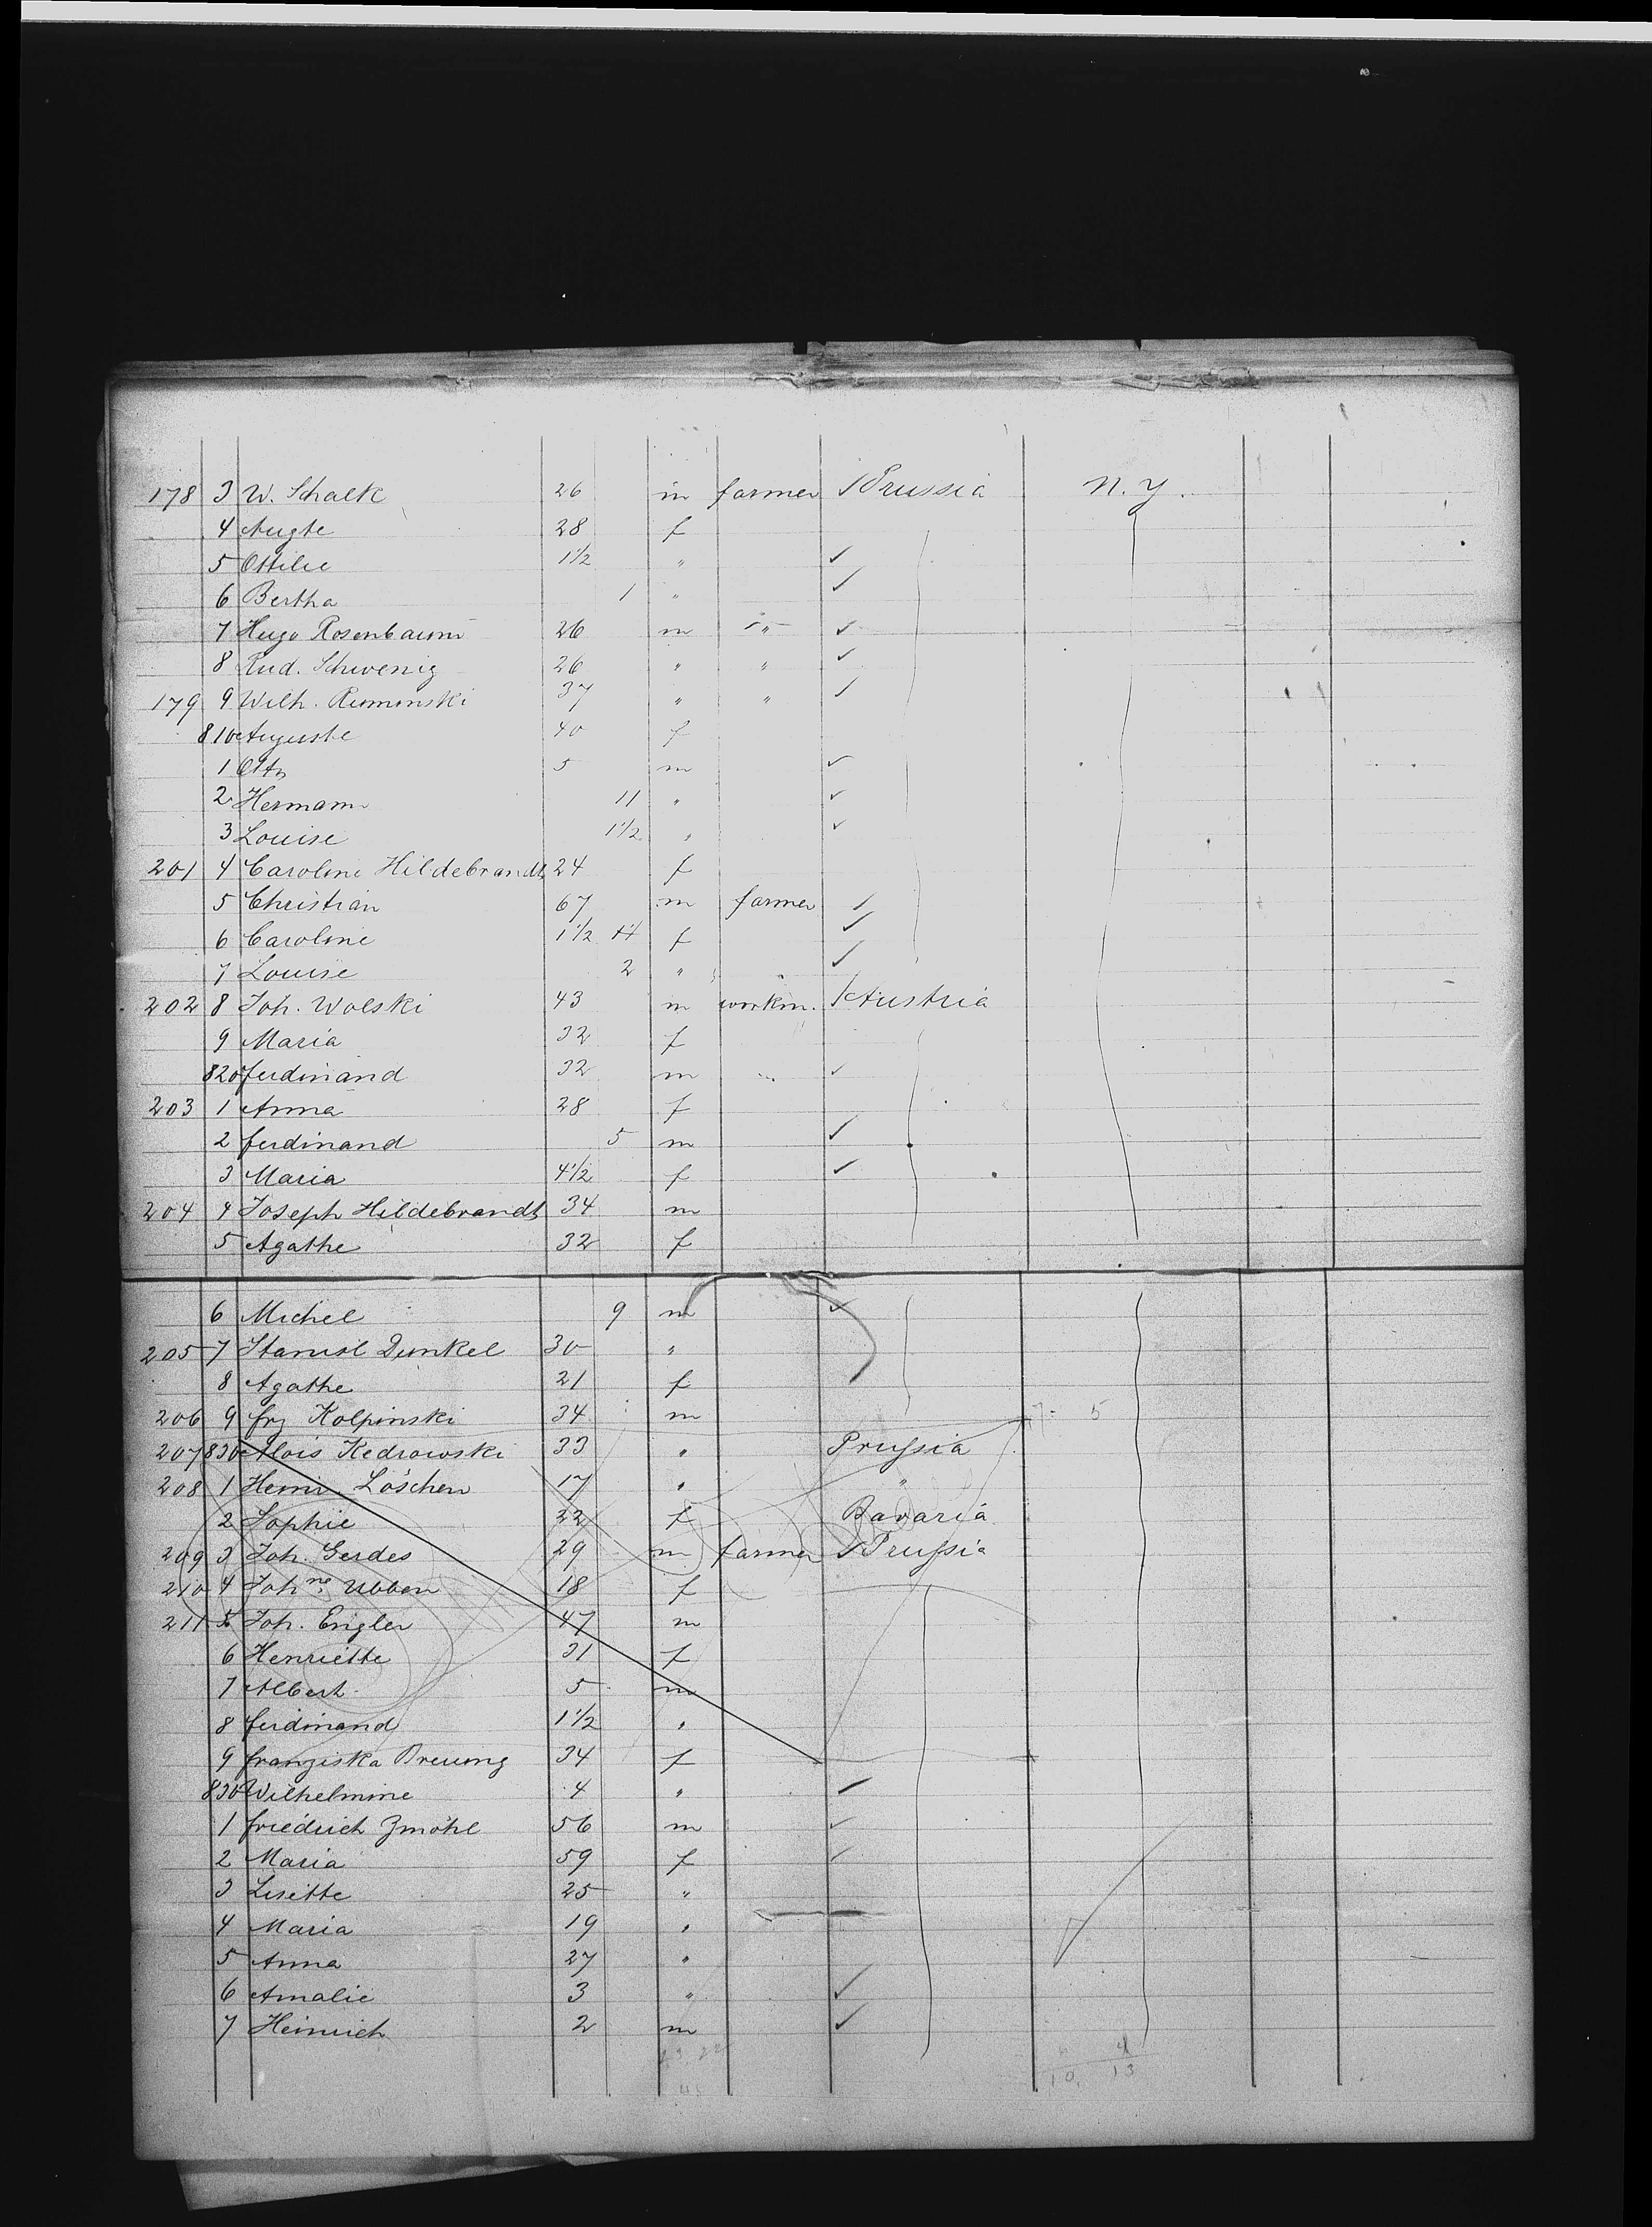 178 3 W. Schalk 26 m farmer Prussia N.Y.
4 Augte 28 f
5 Ottilie 1 1/2 "
6 Bertha 1 "
7 Hugo Rosenbaum 26 m "
8 Rud. Schwenig 26 " "
179 9 Wilh. Ruminski 37 " "
810 Auguste 40 f
1 Otto 5 m
2 Hermann 11 "
3 Louise 1 1/2 "
201 4 Caroline Hildebrandt 24 f
5 Christian 67 m farmer
6 Caroline 1 1/2 f
7 Louise 2 "
202 8 Joh. Wolski 43 m workm. Austria
9 Maria 32 f
820 ferdinand 32 m "
203 1 Anna 28 f
2 ferdinand 5 m
3 Maria 4 1/2 f
204 4 Joseph Hildebrandt 34 m
5 Agathe 32 f
6 Michel 9 m
205 7 Stanisl Dunkel 30 "
8 Agathe 21 f
206 9 frz Kolpinski 34 m 5
207 830 Alois Kedrowski 33 " Prussia
208 1 Heinr. Löschen 17 " "
2 Sophie 22 f Bavaria
209 3 Joh. Gerdes 29 m farmer Prussia
210 4 Johne Ubben 18 f
211 5 Joh. Engler 47 m
6 Henriette 31 f
7 Albert 5 m
8 ferdinand 1 1/2 "
9 franziska Breuing 34 f
830 Wilhelmine 4 "
1 friedrich Zmöhl 56 m
2 Maria 59 f
3 Lisette 25 "
4 Maria 19 "
5 Anna 27 "
6 Amalie 3 "
7 Heinrich 2 m
4
10. 13